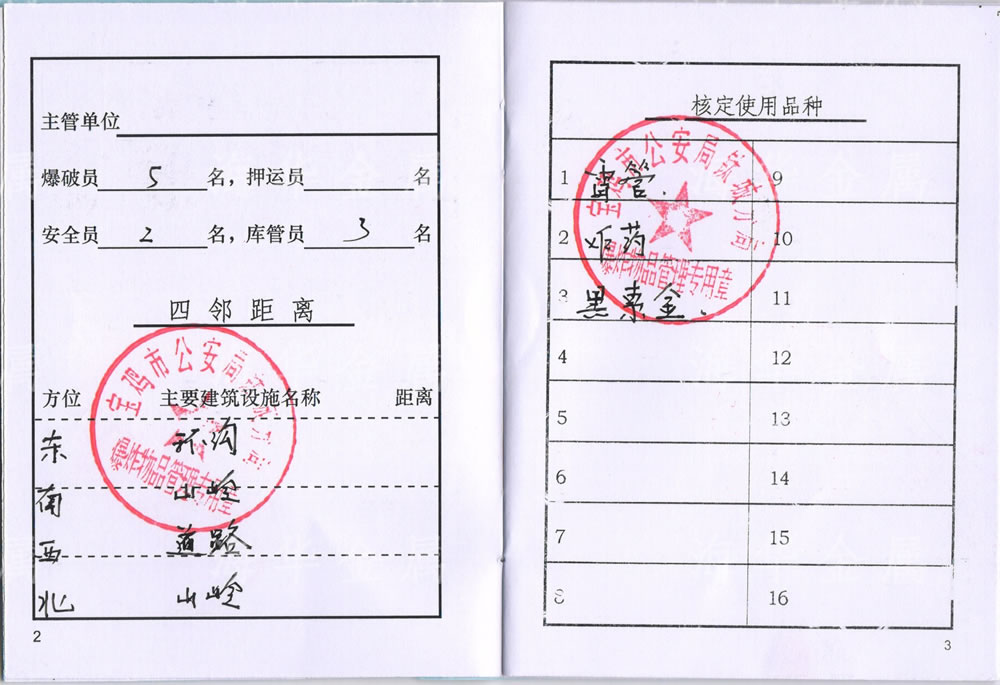 主管单位
爆破员 5 名，押运员 名
安全员 2 名，库管员 3 名
四邻距离
方位 主要建筑设施名称 距离
东 环沟
南 山岭
西 道路
北 山岭
宝鸡市公安局 分局
爆炸物品管理专用章
2
核定使用品种
1 雷管. 9
2 炸药 10
3 黑索金. 11
4 12
5 13
6 14
7 15
8 16
宝鸡市公安局 分局
爆炸物品管理专用章
3